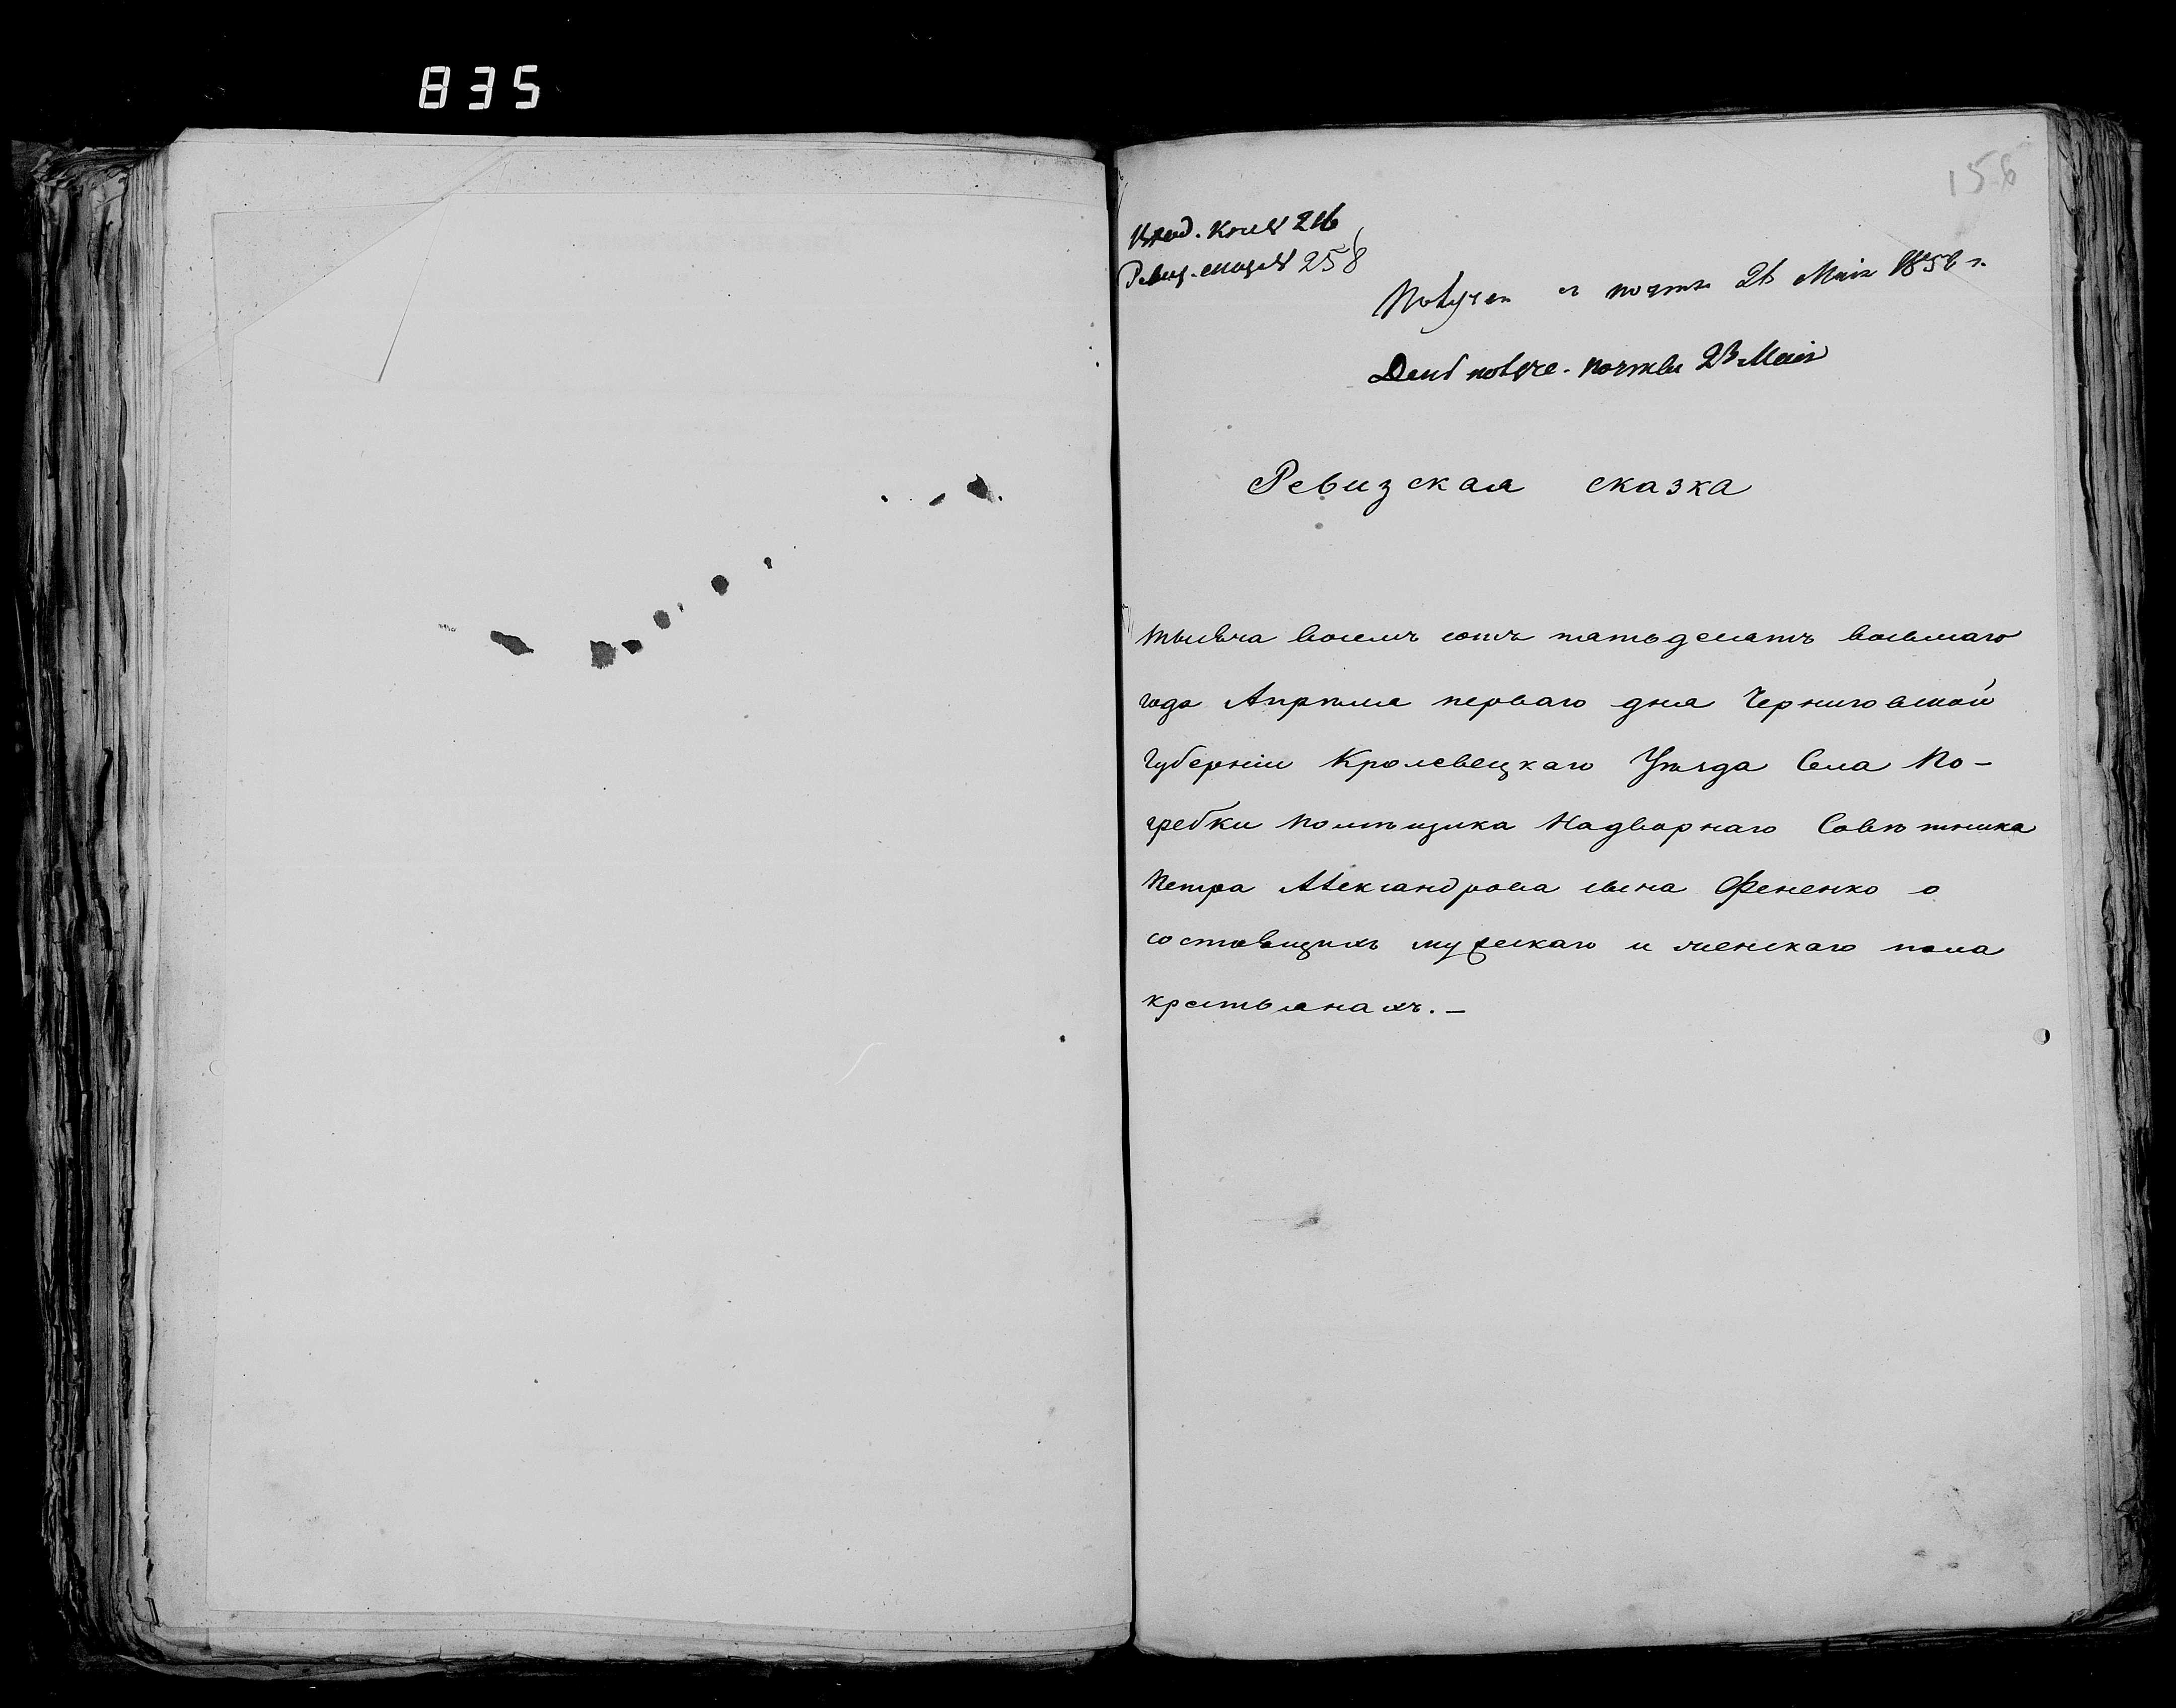 835
156
Вход. кн. № 216
Ревиз. сказ. № 258
Получен с почты 26 Мая 1858 г.
День получе. почты 26 Мая
Ревизская сказка
тысяча восемъ сотъ пятьдесятъ восьмаго
года Апрѣля перваго дня Черниговской
Губерніи Кролевецкаго Уѣзда Села По-
гребки помѣщика Надворнаго Совѣтника
Петра Александрова сына Фененко о
состоящихъ мужескаго и женскаго пола
крестьянахъ. —